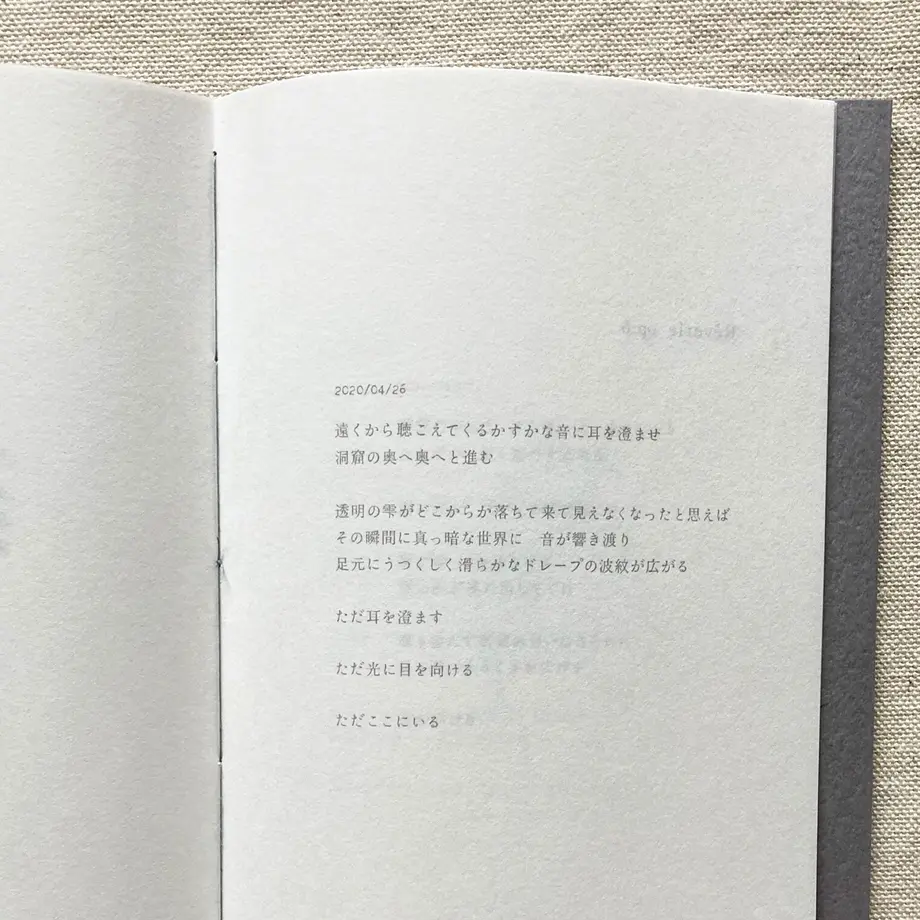 2020/04/26
遠くから聴こえてくるかすかな音に耳を澄ませ
洞窟の奥へ奥へと進む
透明の雫がどこからか落ちて来て見えなくなったと思えば
その瞬間に真っ暗な世界に　音が響き渡り
足元にうつくしく滑らかなドレープの波紋が広がる
ただ耳を澄ます
ただ光に目を向ける
ただここにいる